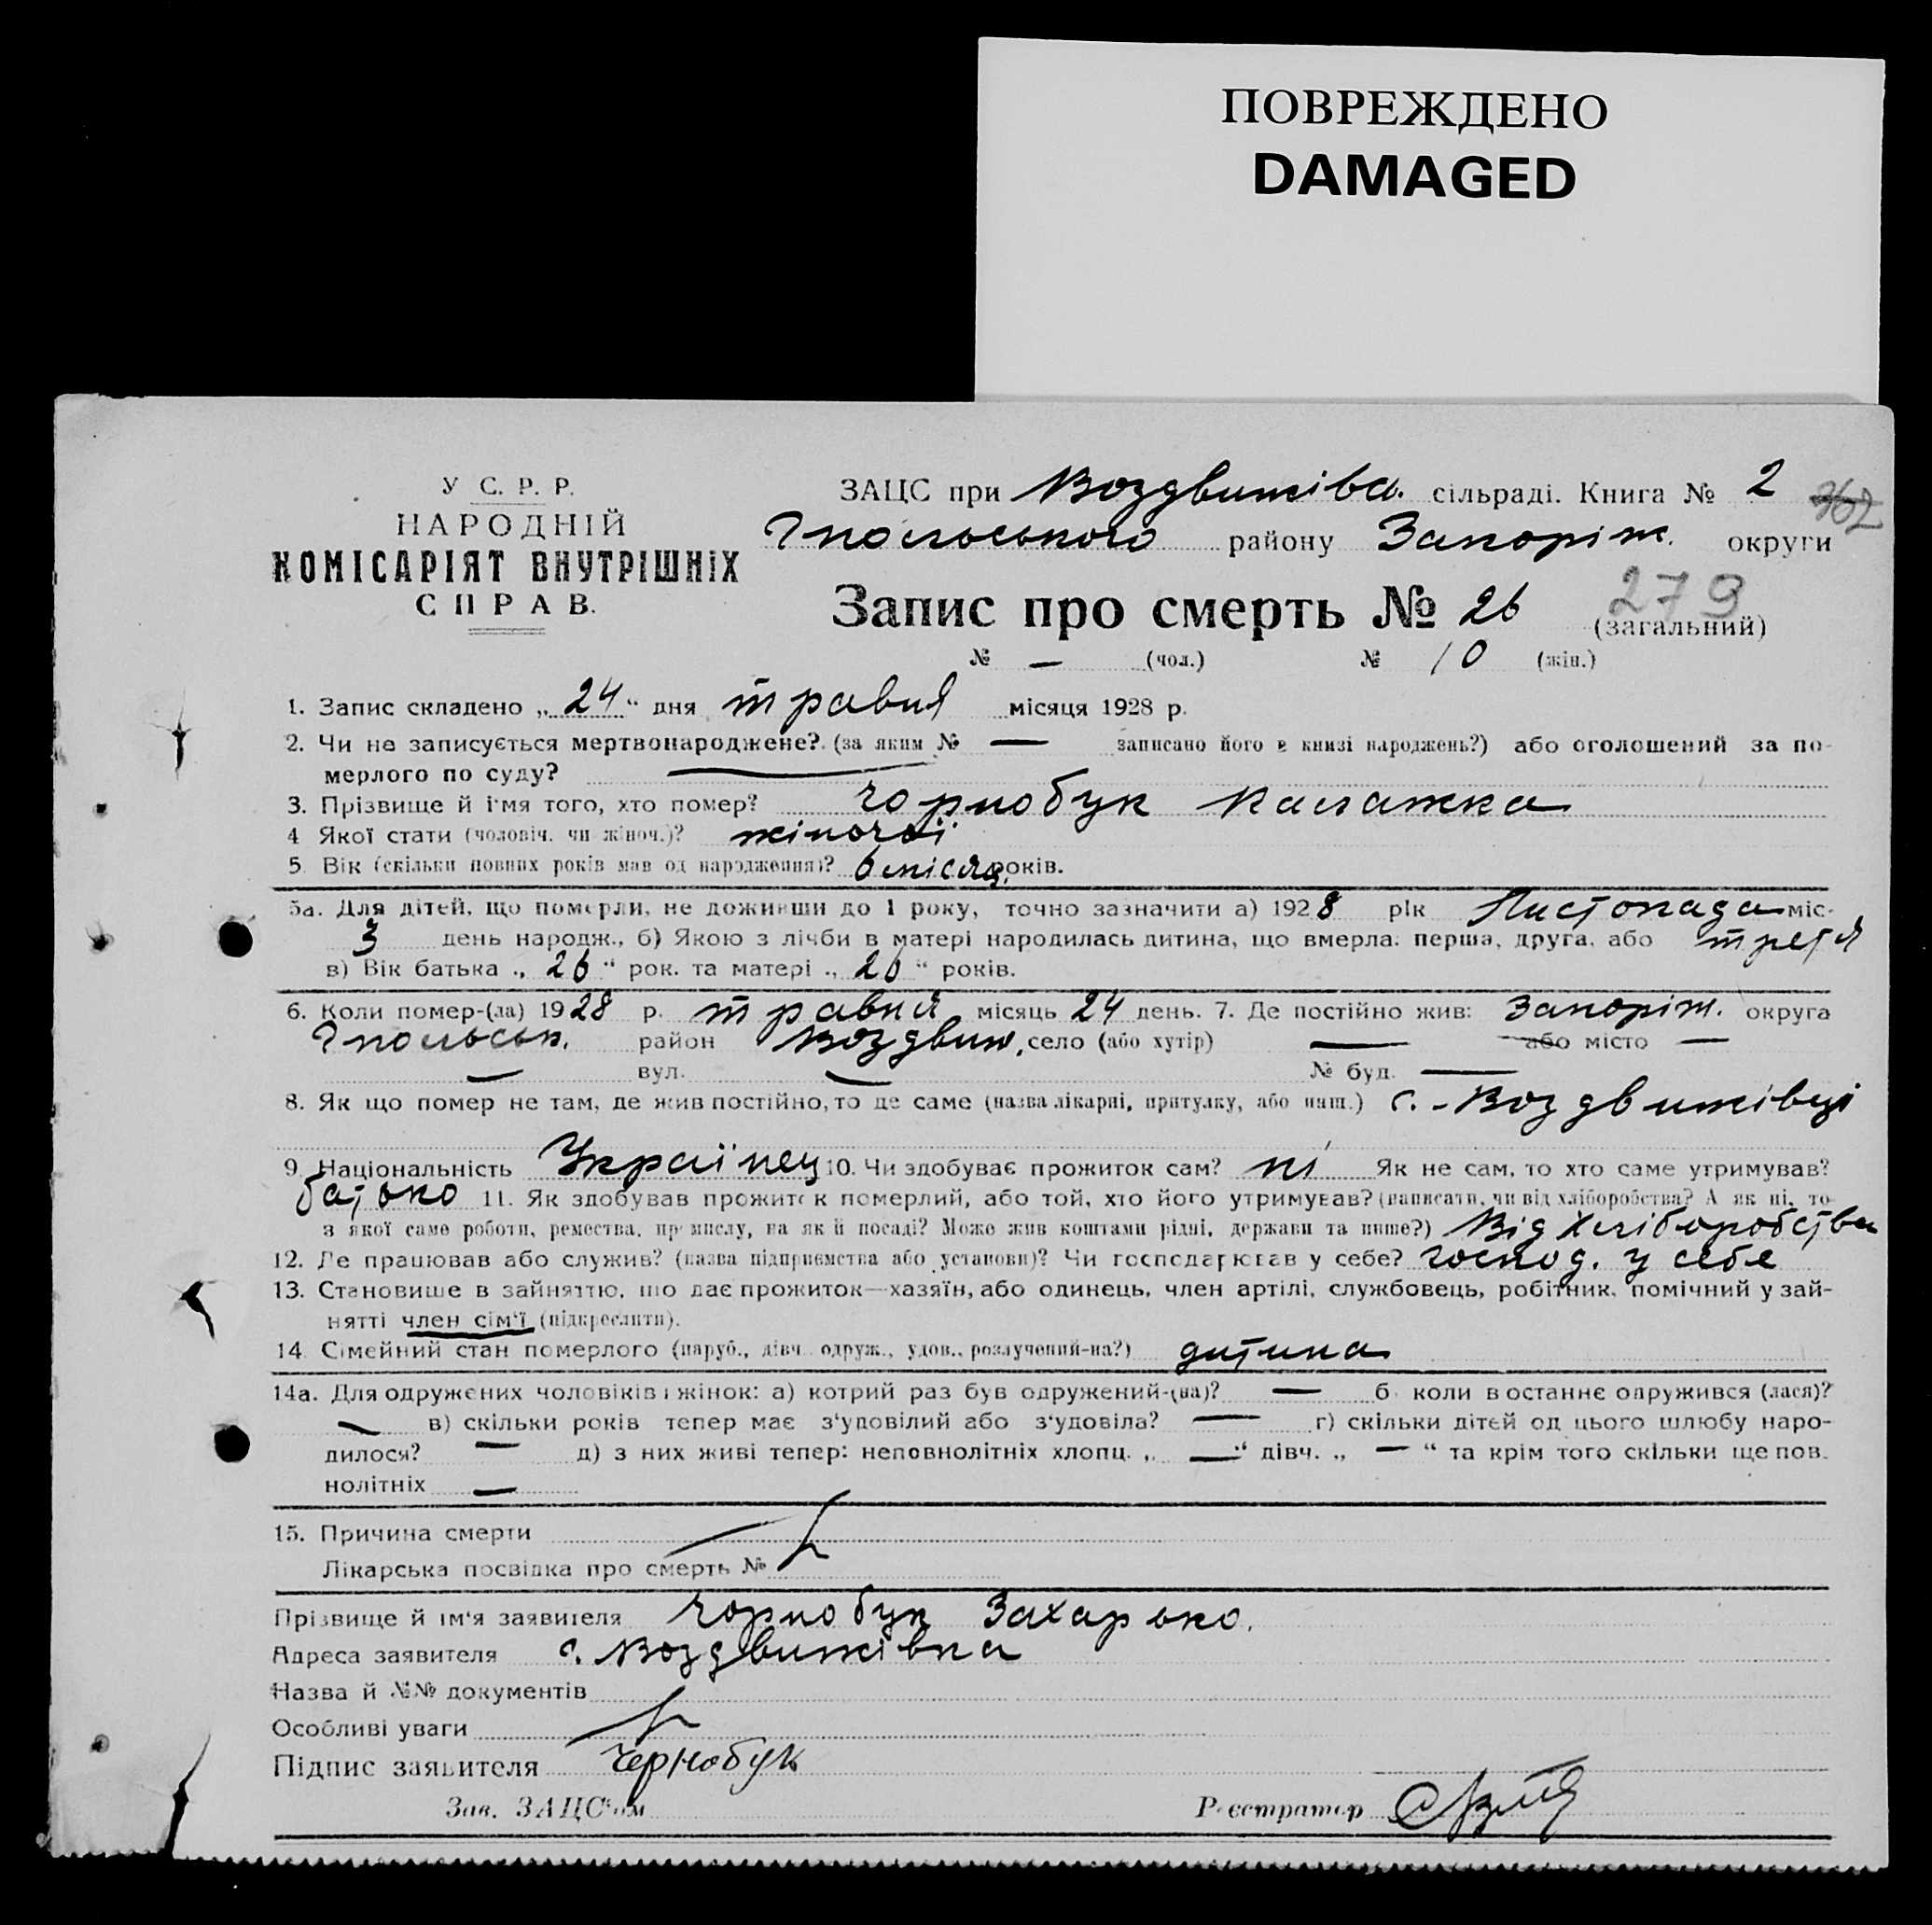 ПОВРЕЖДЕНО
DAMAGED
У С. Р. Р.
НАРОДНІЙ
КОМІСАРІЯТ ВНУТРІШНІХ
СПРАВ.
ЗАЦС при Воздвижівс. сільраді. Книга № 2 362
Гпольського району Запоріж. округи
Запис про смерть № 26 279 (загальний)
№ — (чол.) № 10 (жін.)
1. Запис складено „24“ дня травня місяця 1928 р.
2. Чи не записується мертвонароджене? (за яким № — записано його в книзі народжень?) або оголошений за по-
мерлого по суду? —
3. Прізвище й імя того, хто помер? Чорнобук Палажка
4 Якої стати (чоловіч. чи жіноч.)? жіночої
5. Вік (скільки повних років мав од народження)? 6 місяц. років.
5а. Для дітей, що померли, не доживши до 1 року, точно зазначити а) 1928 рік Листопада міс-
3 день народж., б) Якою з лічби в матері народилась дитина, що вмерла: перша, друга, або третя
в) Вік батька „26“ рок. та матері „26“ років.
6. Коли помер-(ла) 1928 р. травня місяць 24 день. 7. Де постійно жив: Запоріж. округа
Гпольськ. район Воздвиж. село (або хутір) — або місто —
— вул. — № буд. —
8. Як що помер не там, де жив постійно, то де саме (назва лікарні, притулку, або инш.) с. - Воздвижівці
9. Національність Українец 10. Чи здобуває прожиток сам? ні Як не сам, то хто саме утримував?
батько 11. Як здобував прожиток померлий, або той, хто його утримував? (написати, чи від хліборобства? А як ні, то
з якої саме роботи, ремества, промислу, на як й посаді? Може жив коштами рідні, держави та инше?) Від Хліборобства
12. Де працював або служив? (назва підприємства або установи)? Чи господарював у себе? господ. у себе
13. Становище в зайняттю, що дає прожиток—хазяїн, або одинець, член артілі, службовець, робітник, помічний у зай-
нятті член сім'ї (підкреслити).
14. Сімейний стан померлого (паруб., дівч. одруж., удов., розлучений-на?) дитина
14а. Для одружених чоловіків і жінок: а) котрий раз був одружений-(на)? — б) коли востаннє одружився (лася)?
— в) скільки років тепер має з'удовілий або з'удовіла? — г) скільки дітей од цього шлюбу наро-
дилося? — д) з них живі тепер: неповнолітніх хлопц. „—“ дівч. „—“ та крім того скільки ще пов.
нолітніх —
15. Причина смерти
Лікарська посвідка про смерть №
Прізвище й ім'я заявителя Чорнобук Захарько.
Адреса заявителя с. Воздвижівка
Назва й №№ документів
Особливі уваги
Підпис заявителя Чернобук
Зав. ЗАЦС'ом Реєстратор